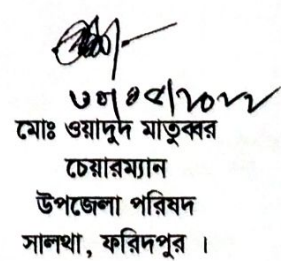 মোঃ ওয়াদুদ মাতুব্বর
চেয়ারম্যান
উপজেলা পরিষদ
সালথা, ফরিদপুর ।